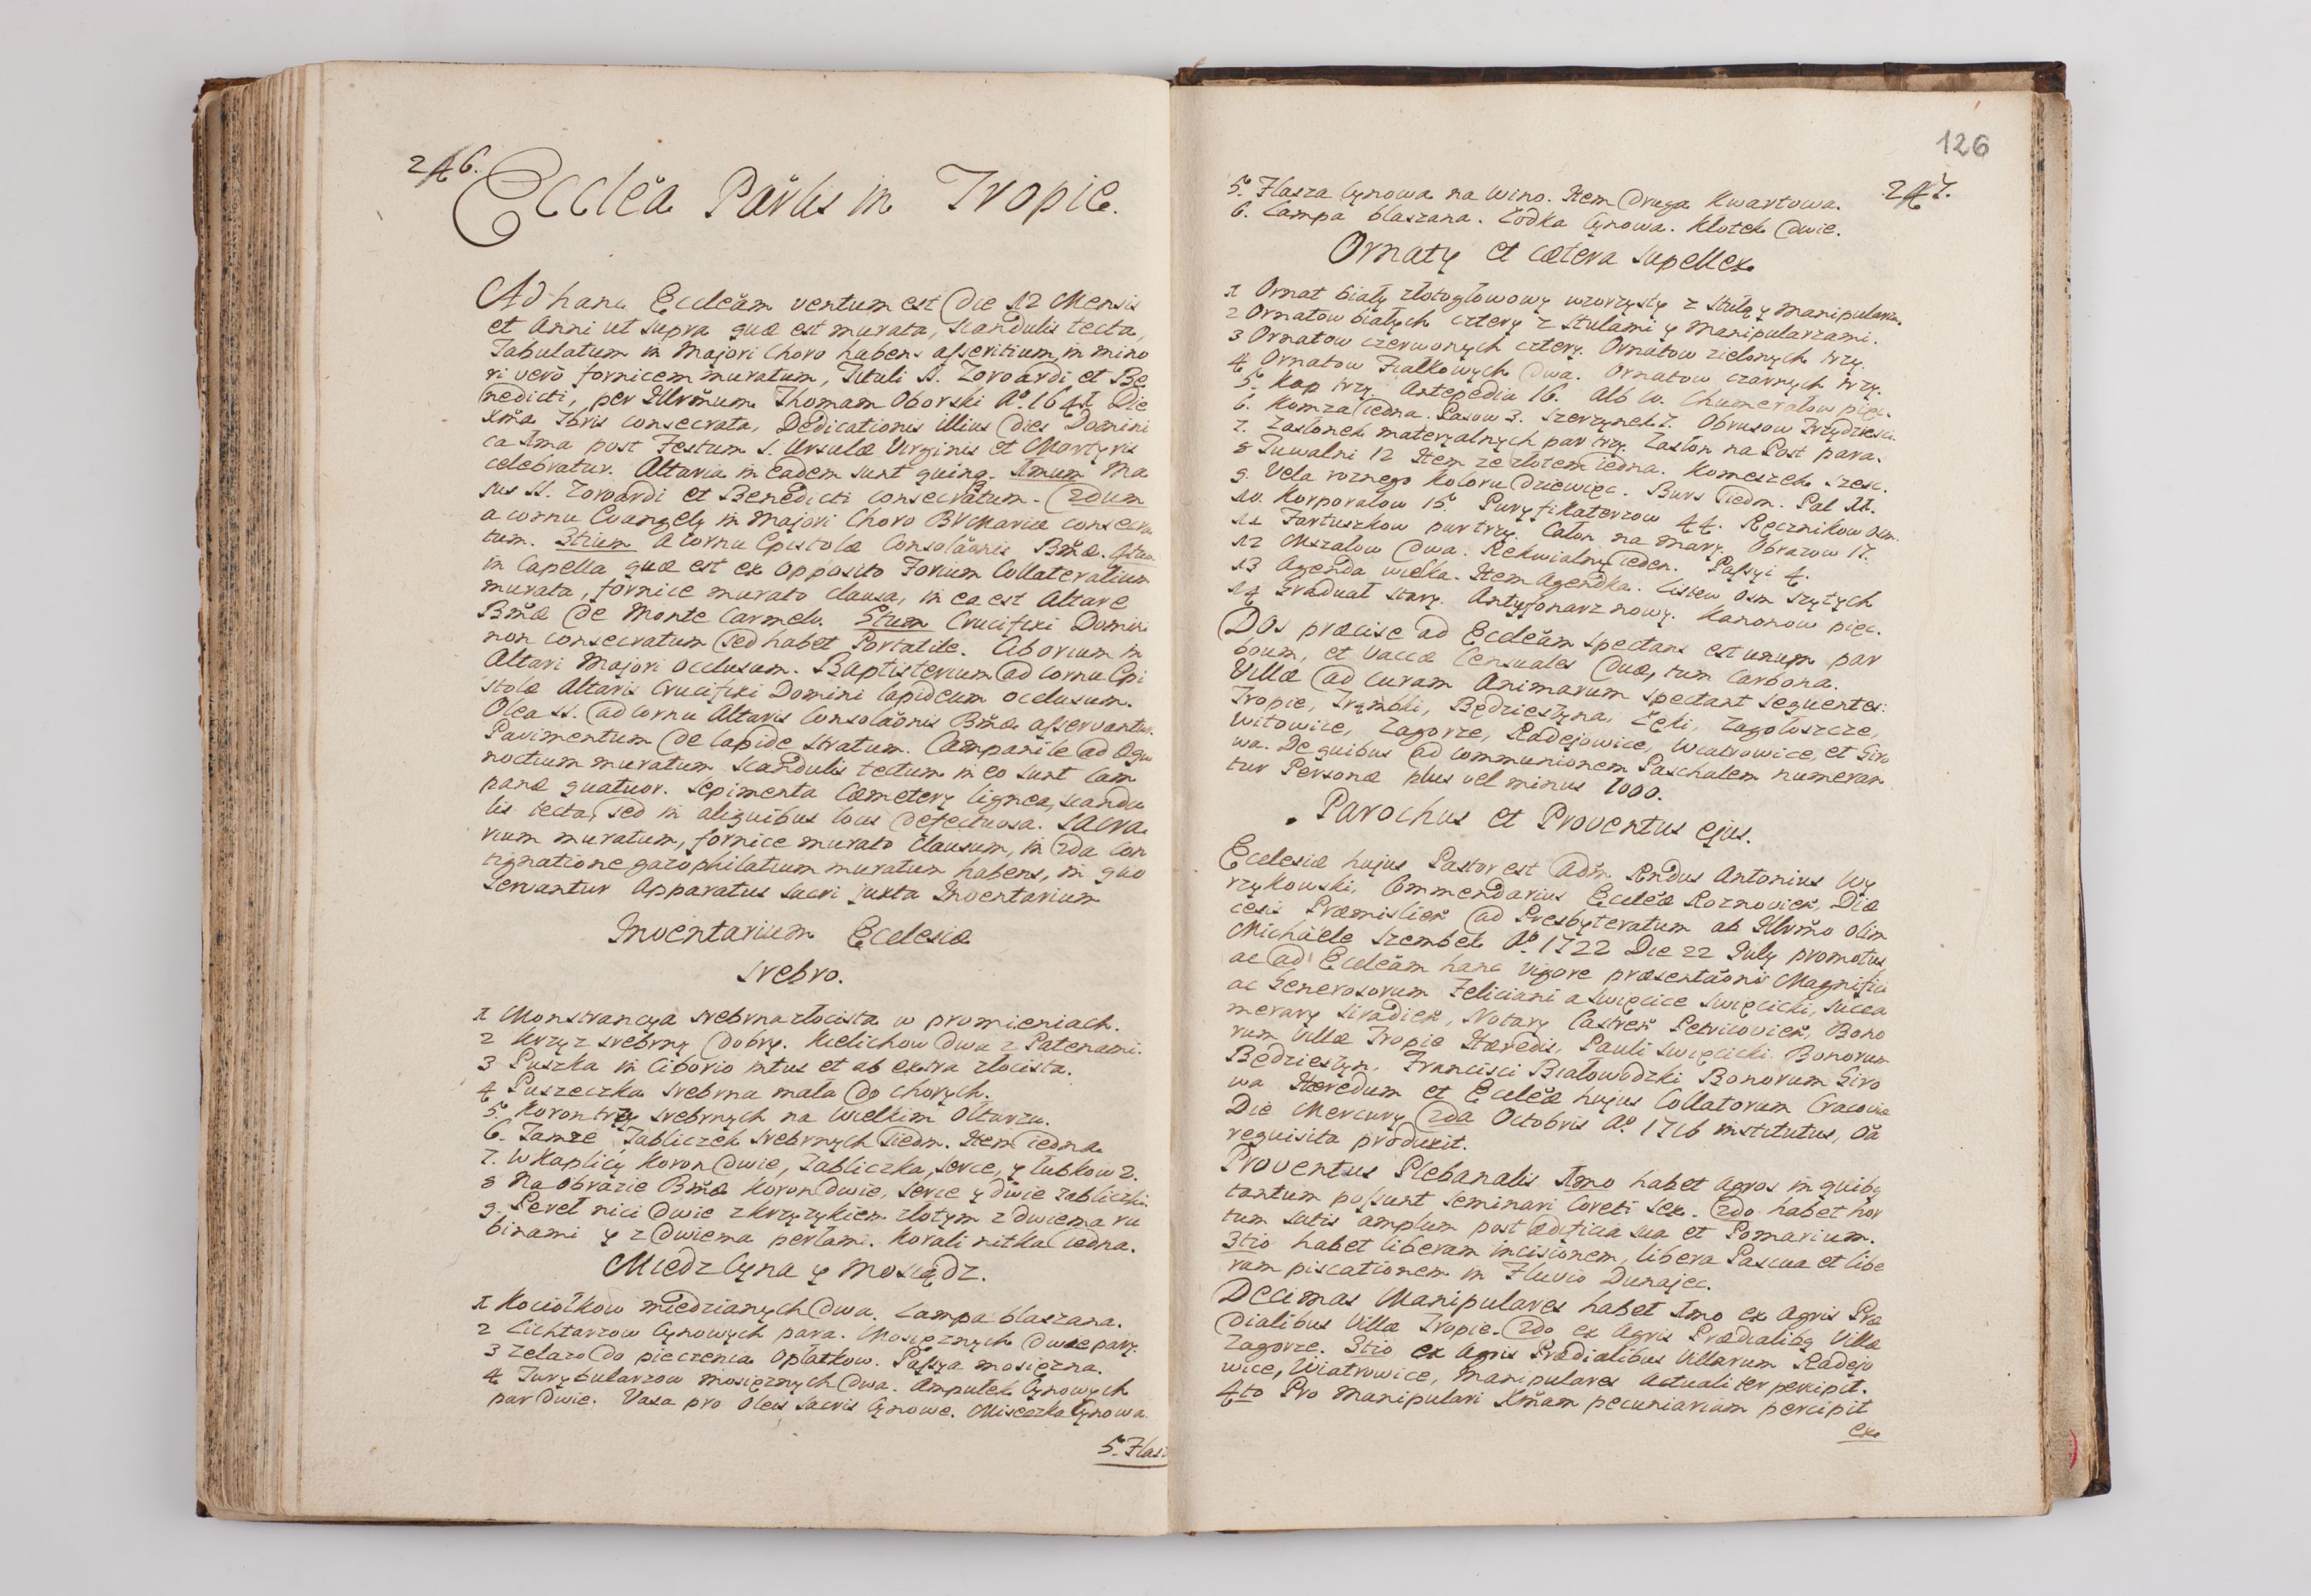 246.
Ecclẽa Pärlis in Tropie.
Ad hanc Ecclẽam ventum est Die 12 Mensis
et Anni ut supra quæ est murata, scandulis tecta,
Tabulatum in Majori Choro habens asseritium, in mino
ri verò fornicem muratum, Tituli SS. Zoroardi et Be
nedicti, per Illrm̃um Thomam Oborski Aº 1641 Die
Xm̃a 7bris consecrata, Dedicationis illius dies Domini
ca 1ma post Festum S. Ursulæ Virginis et Martyris
celebratur. Altaria in eadem sunt quinq. 1mum Ma
jus SS. Zoroardi et Benedicti consecrãtum. 2dum
a cornu Evangely in Majori Choro BVMariæ consecra
tum. 3tium a cornu Epistolæ Consolãonis Bm̃æ. 4tum
in Capella quæ est ex opposito Forium Collateralium
murata, fornice murato clausa, in ea est Altare
Bm̃æ de Monte Carmelo. 5tum Crucifixi Domini
non consecratum sed habet Portatile. Ciborium in
Altari Majori occlusum. Baptisterium ad cornu Epi
stolæ Altaris Crucifixi Domini lapideum occlusum.
Olea SS. ad cornu Altaris Consolãonis Bm̃æ asservantur.
Pavimentum de lapide stratum. Campanile ad Aqui
noctium muratum scandulis tectum in eo sunt Cam
panæ quatuor. Sepimenta Cæmetery lignea, scandu
lis tecta, sed in aliquibus locis defectuosa. Sacra
rium muratum, fornice murato clausum, in 2da Con
tignatione gazophilatium muratum habens, in quo
servantur Apparatus sacri juxta Inventarium
Inventarium Ecclesiæ
Srebro.
1 Monstrancya srebrna złocista w promieniach.
2 Krzyż srebrny dobry. Kielichow dwa z Patenami.
3 Puszka in Ciborio intus et ab extra złocista.
4 Puszeczka srebrna mała do chorych.
5. Koron trzy srebrnych na wielkim Ołtarzu.
6. Tamże Tabliczek srebrnych siedm. Item iedna.
7. W Kaplicy Koron dwie, Tabliczka, serce, y łubkow 2.
8 Na Obrazie Bm̃æ Koron dwie, serce y dwie tabliczki.
9. Pereł nici dwie z krzyżykiem złotym z dwiema ru
binami y z dwiema perłami. Korali nitka iedna.
Miedz Cyna y Mosiądz.
1 Kociołkow miedzianych dwa. Lampa blaszana.
2 Lichtarzow Cynowych para. Mosiężnych dwie pary.
3 Zelazo do pieczenia Opłatkow. Passya mosiężna.
4 Turybularzow mosiężnych dwa. Ampułek Cynowych
par dwie. Vasa pro Oleis Sacris Cynowe. Miseczka Cynowa.
5. Flasz
126
247.
5. Flasza Cynowa na wino. Item druga Kwartowa.
6. Lampa blaszana. Łodka Cynowa. Kłotek dwie.
Ornaty et cætera supellex
1 Ornat biały złotogłowowy wzorzysty z Stułą y Manipularzem.
2 Ornatow białych cztery z Stułami y Manipularzami.
3 Ornatow czerwonych cztery. Ornatow zielonych trzy.
4 Ornatow Fiałkowych dwa. Ornatow czarnych trzy.
5. Kap trzy. Antepedia 16. Alb 10. Chumerałow pięć.
6. Komża iedna. Pasow 3. Szerzynek 7. Obrusow trzydzieści.
7. Zasłonek materyalnych par trzy. Zasłon na Post para.
8 Tuwalni 12 Item ze złotem iedna. Komeszek sześć.
9. Vela rożnego koloru dziewięć. Burs siedm. Pal 11.
10. Korporałow 15. Puryfikaterzow 44. Ręcznikow osm.
11 Fartuszkow par trzy. Całon na mary. Obrazow 17.
12 Mszałow dwa. Rekwialny ieden. Passyi 4.
13 Agenda wielka. Item Agendka. Lisztew osm szytych
14 Graduał stary. Antyfonarz nowy. Kanonow pięć.
Dos præcise ad Ecclẽam spectans est unum par
boum, et vaccæ Censuales duæ, tum Carbona.
Villæ ad curam Animarum spectant sequentes:
Tropie, Trąmbki, Będzieszyna, Łęki, Zagołoszcze,
Witowice, Zagorze, Radejowice, Wiatrowice, et Giro
wa. De quibus ad communionem Paschalem numeran
tur Personæ plus vel minus 1000.
Parochus et Proventus ejus.
Ecclesiæ hujus Pastor est Adm̃ Rndus Antonius Wy
rzykowski, Commendarius Ecclẽæ Roznovien, Diæ
cesis Præmislien ad Presbyteratum ab Illrm̃o olim
Michaele Szembek Aº 1722 Die 22 July promotus
ac ad Ecclẽam hanc vigore præsentãonis Magnifici
ac Generosorum Feliciani a Swięcice Swięcicki, Succa
merary Siradien, Notary Castren Petricovien, Bono
rum Villæ Tropie Hæredis, Pauli Swięcicki Bonorum
Będzieszyn, Francisci Białowodzki Bonorum Giro
wa Hæredum et Ecclẽæ hujus Collatorum Cracoviæ
Die Mercury 2da Octobris Aº 1726 institutus, Oã
requisita produxit.
Proventus Plebanalis 1mo habet agros in quibq
tantum possunt seminari Coreti sex. 2do habet hor
tum satis amplum post ædificia sua et Pomarium.
3tio habet liberam incisionem, libera Pascua et libe
ram piscationem in Fluvio Dunajec.
Decimas Manipulares habet 1mo ex Agris Præ
dialibus Villæ Tropie. 2do ex Agris Prædialibq Villæ
Zagorze. 3tio ex Agris Prædialibus Villarum Radejo
wice, Wiatrowice, Manipulares actualiter percipit.
4to Pro manipulari Xm̃am pecuniariam percipit
ex